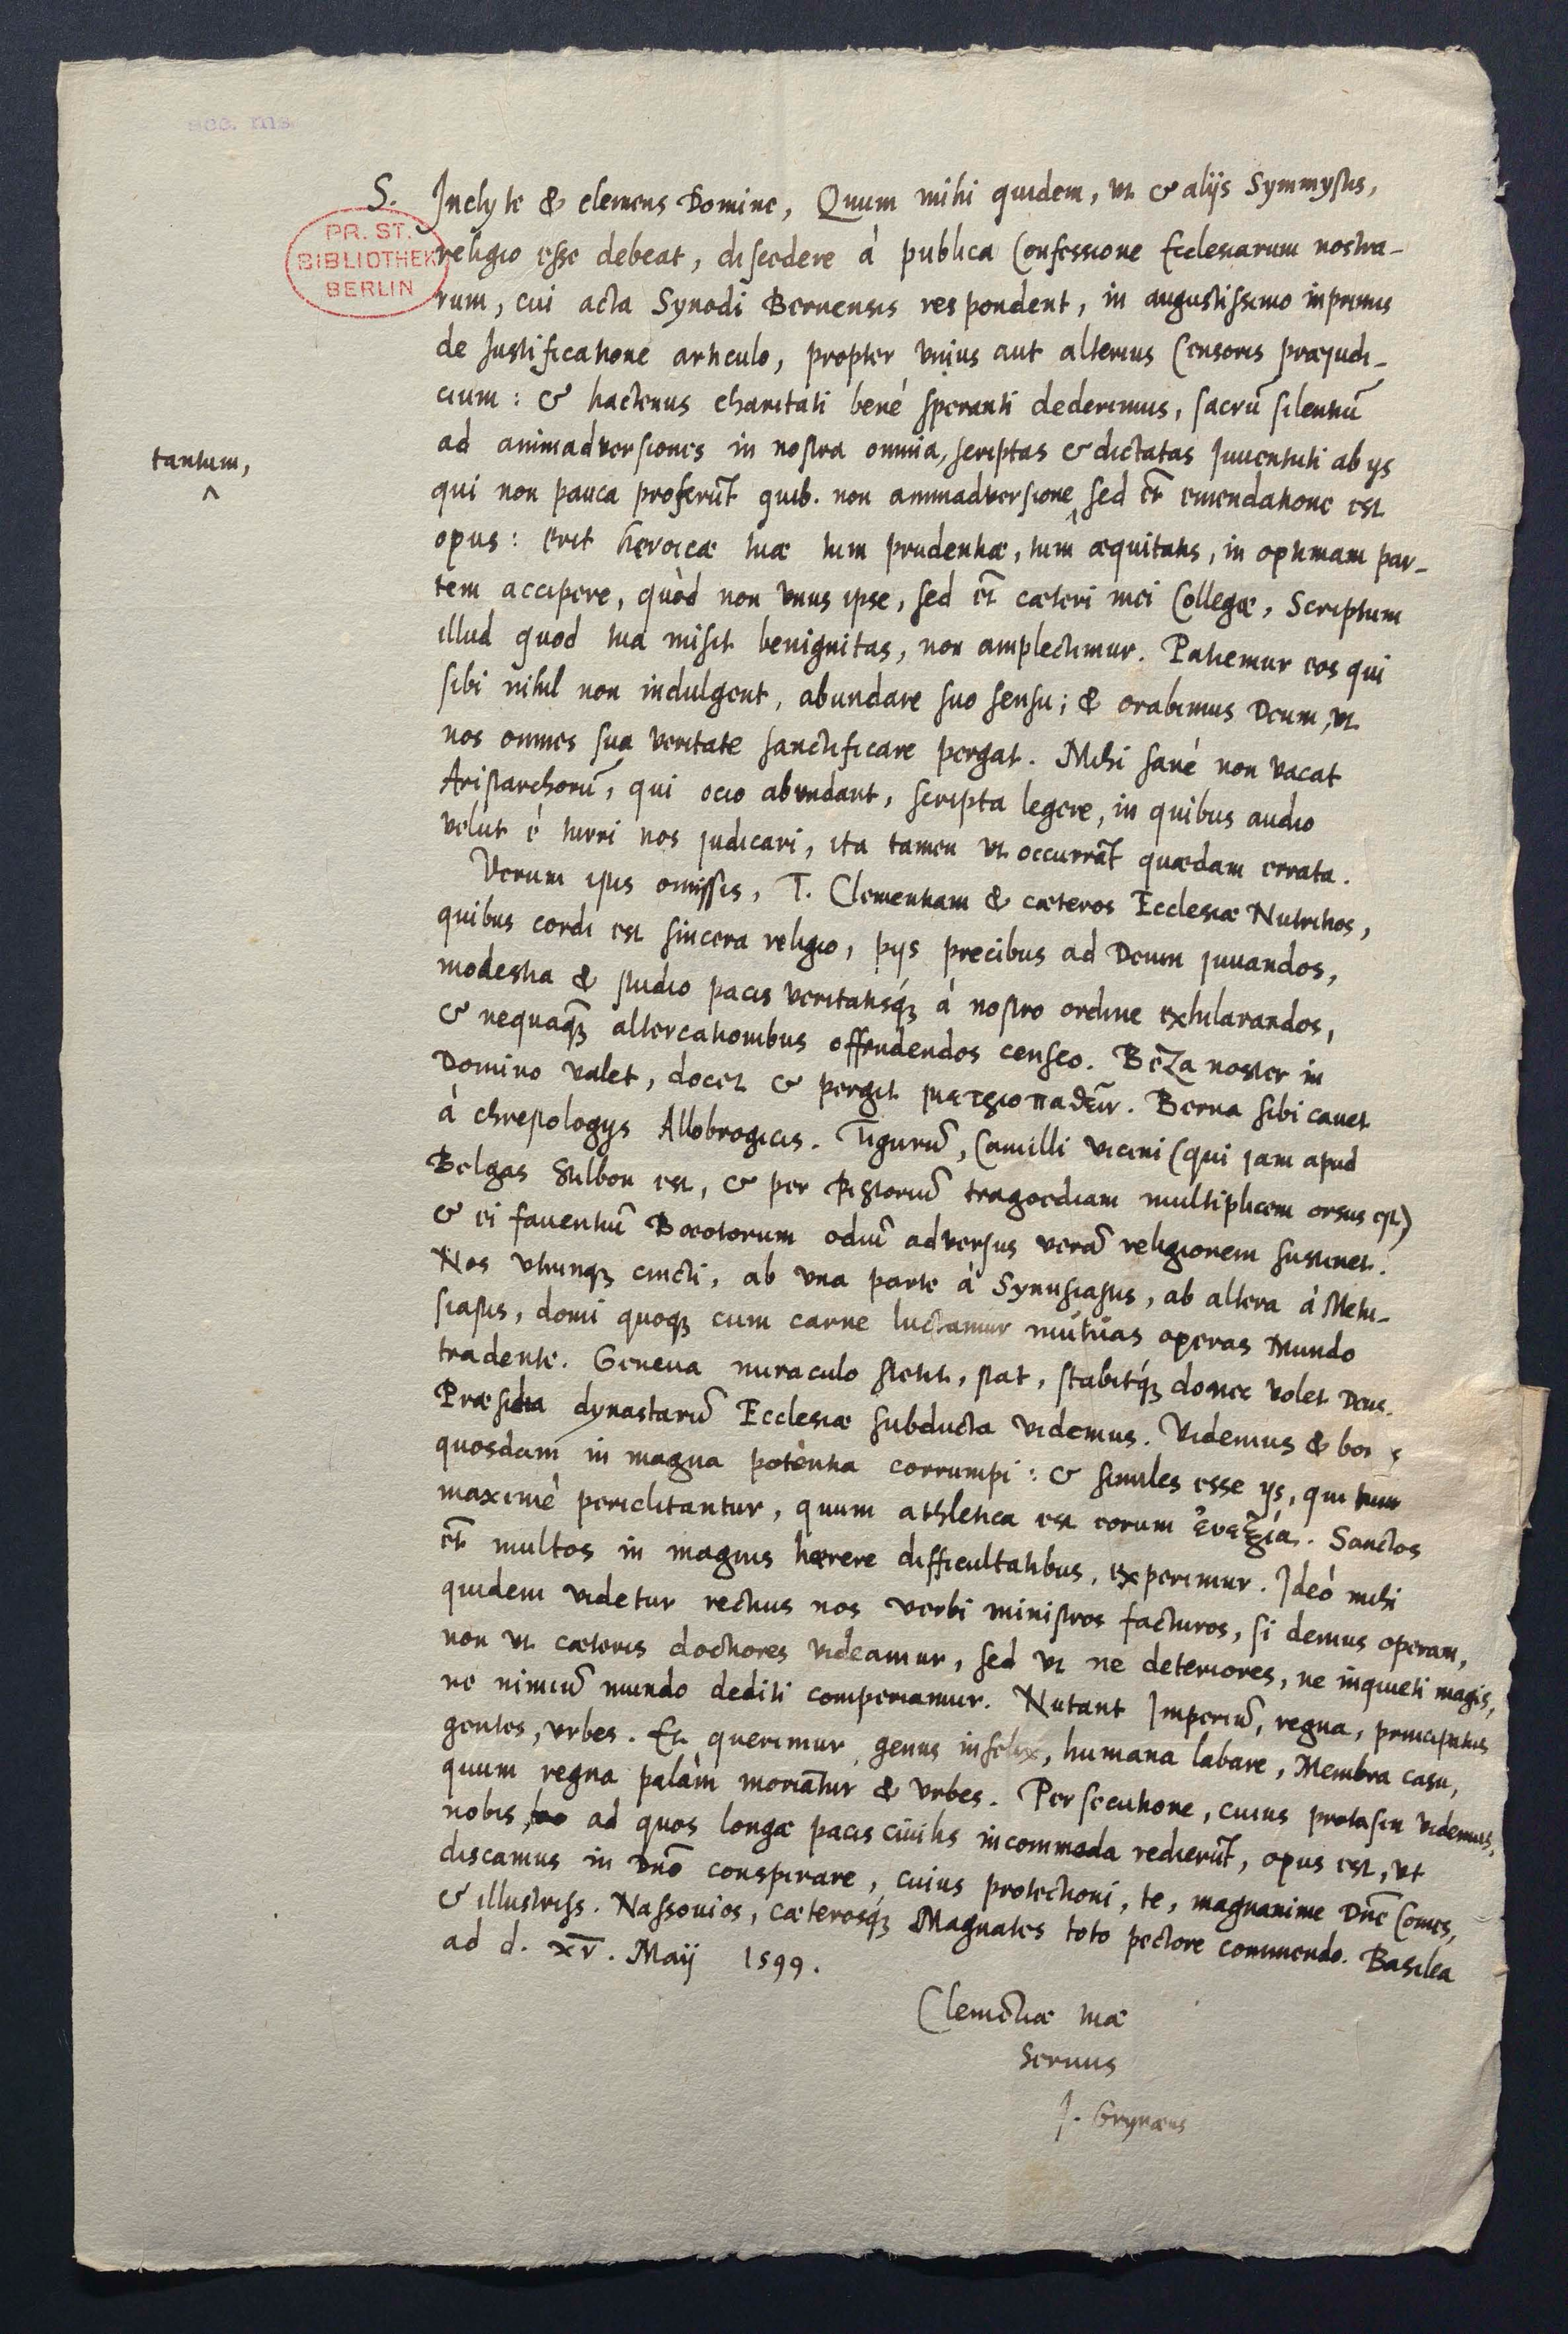 acc. ms
S. Inclyte & clemens Domine, Quum mihi quidem, ut & alijs Symmystis,
PR. ST.
BIBLIOTHEK
BERLIN
religio esse debeat, discedere à publica Confessione Ecclesiarum nostra-
rum, cui acta Synodi Bernensis respondent, in augustissimo inprimis
de Justificatione articulo, propter unius aut alterius Censoris præjudi-
cium: & hactenus charitati benè speranti dederimus, sacrũ silentiũ
ad animadversiones in nostra omnia, scriptas & dictatas Juventuti ab ijs
tantum,
qui non pauca proferũt quib. non animadversione ^ sed et̃ emendatione est
opus: erit heroicæ tuæ tum prudentiæ, tum æquitatis, in optimam par-
tem accipere, quòd non unus ipse, sed et̃ cæteri mei Collegæ, Scriptum
illud quod tua misit benignitas, non amplectimur. Patiemur eos qui
sibi nihil non indulgent, abundare suo sensu; & orabimus Deum, ut
nos omnes sua veritate sanctificare pergat. Mihi sanè non vacat
Aristarchorũ, qui ocio abundant, scripta legere, in quibus audio
velut è turri nos judicari, ita tamen ut occurrãt quædam errata.
Verum istis omissis, T. Clementiam & cæteros Ecclesiæ Nutritios,
quibus cordi est sincera religio, pijs precibus ad Deum juvandos,
modestia & studio pacis veritatisq́ꝫ à nostro ordine exhilarandos,
& nequaq̃ꝫ altercationibus offendendos censeo. Beza noster in
Domino valet, docet & pergit Berna sibi cavet
à chrestologijs Allobrogicis. Tigurũ, Camilli vicini (qui jam apud
Belgas Stilbon est, & per Pistoriũ tragoediam multiplicem orsus est)
& ei faventiũ Boeotorum odiũ adversus verã religionem sustinet.
Nos utrinqꝫ cincti, ab una parte à Synusiastis, ab altera à Metu-
siastis, domi quoqꝫ cum carne luctamur mutuas operas Mundo
tradente. Geneva miraculo stetit, stat, stabitq́ꝫ donec volet Deus.
Præsidia dynastarũ Ecclesiæ subducta videmus. Videmus & bonos
quosdam in magna potentia corrumpi: & similes esse ijs, qui tum
maximè periclitantur, quum athletica est eorum ἐυεξία. Sanctos
et̃ multos in magnis hærere difficultatibus, experimur. Ideò mihi
quidem videtur rectius nos verbi ministros facturos, si demus operam,
non ut cæteris doctiores videamur, sed ut ne deteriores, ne inquieti magis,
ne nimiũ mundo dediti comperiamur. Nutant Imperiũ, regna, principatus
gentes, urbes. Et querimur genus infelix, humana labare, Membra casu,
quum regna palàm moriãtur & urbes. Persecutione, cuius protasin videmus,
nobis, ad quos longæ pacis civilis incommoda redierũt, opus est, ut
discamus in Dnõ conspirare, cuius protectioni, te, magnanime Dnẽ Comes,
& illustriss. Nassovios, cæterosq́ꝫ Magnates toto pectore commendo. Basilea
ad d. xv. Maij 1599.
Clemẽtiæ tuæ
Servus
J. Grynæus